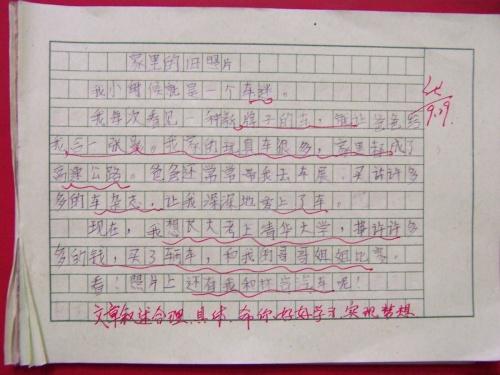 家里的旧照片
我小时候就是一个车迷。
我每次看见一种新牌子的车,就让爸爸给
我一张。我家的玩具车很多,家里都成了
高速公路。爸爸还常常带我去车展,买许许多
多的车杂志,让我深深地爱上了车。
现在,我想长大考上清华大学,挣许许多
多的钱,买了辆车,和我的哥哥姐姐比赛。
看!照片上还有我和车呢!
文章叙述合理、具体,希你好好学习,实现梦想
9.29.